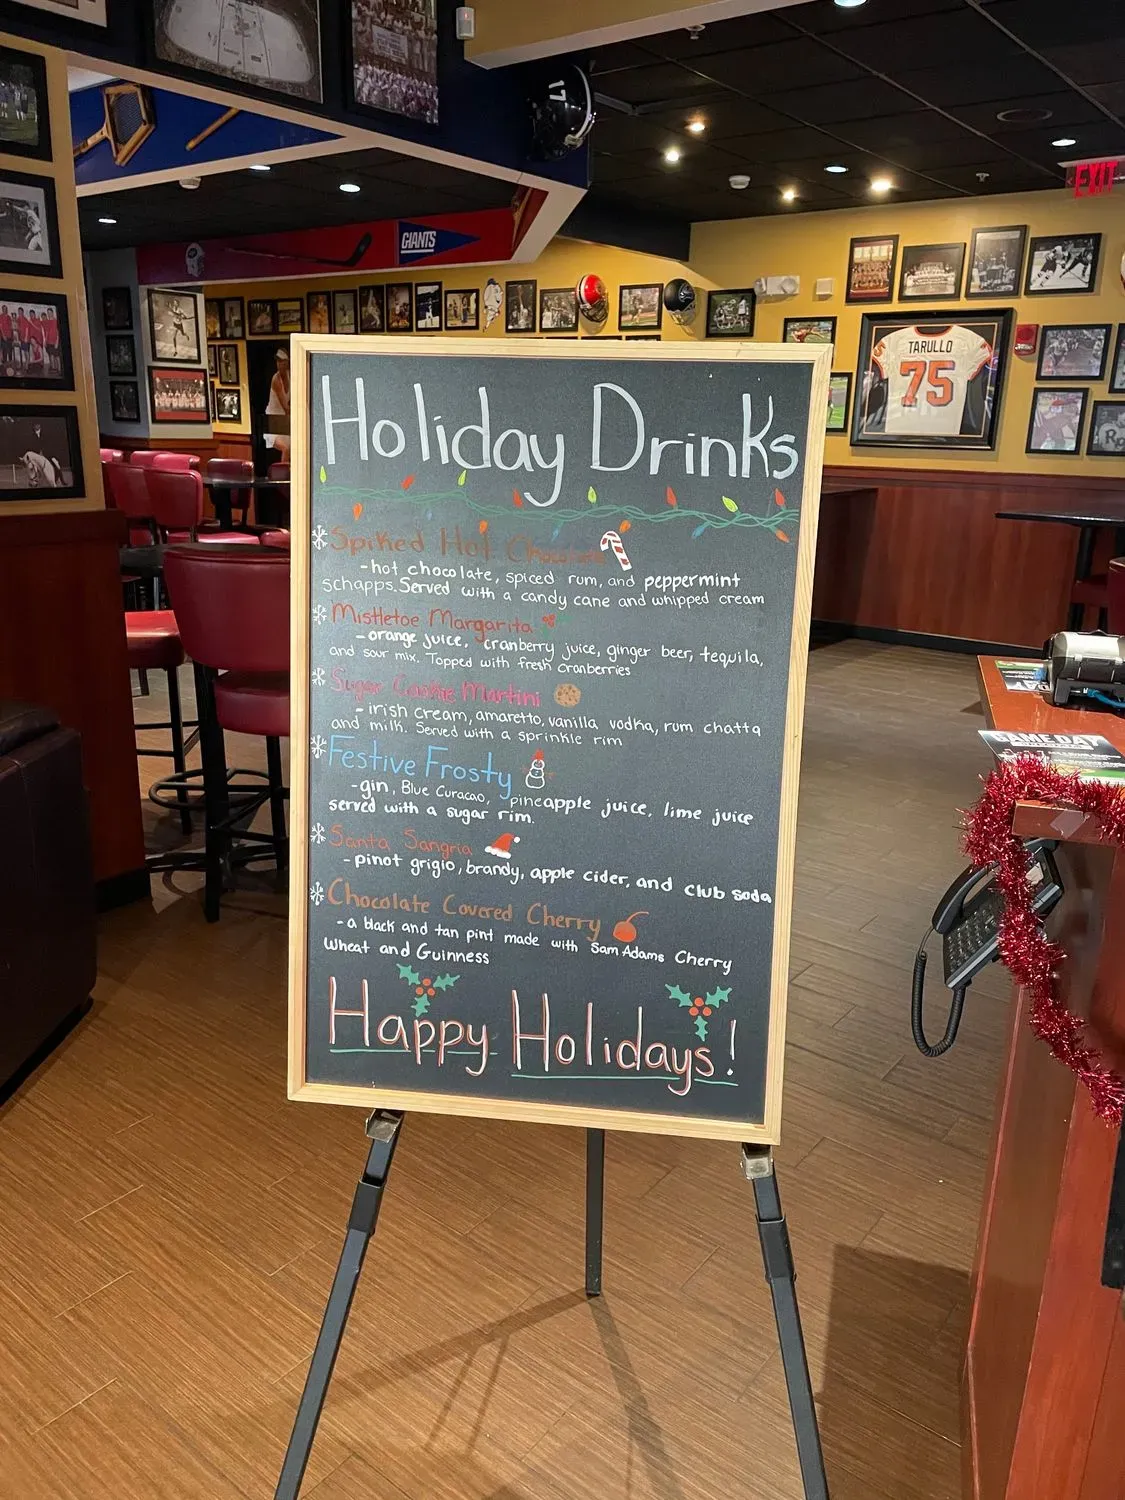 17
GIANTS
EXIT
TARULLO
75
Holiday Drinks
Spiked Hot Chocolate
-hot chocolate, spiced rum, and peppermint
schapps. Served with a candy cane and whipped cream
Mistletoe Margarita
-orange juice, cranberry juice, ginger beer, tequila,
and sour mix. Topped with fresh cranberries
Sugar Cookie Martini
-irish cream, amaretto, vanilla vodka, rum chatta
and milk. Served with a sprinkle rim
Festive Frosty
-gin, Blue Curacao, pineapple juice, lime juice
served with a sugar rim.
Santa Sangria
-pinot grigio, brandy, apple cider, and club soda
Chocolate Covered Cherry
-a black and tan pint made with Sam Adams Cherry
Wheat and Guinness
Happy Holidays!
GAMEDAY